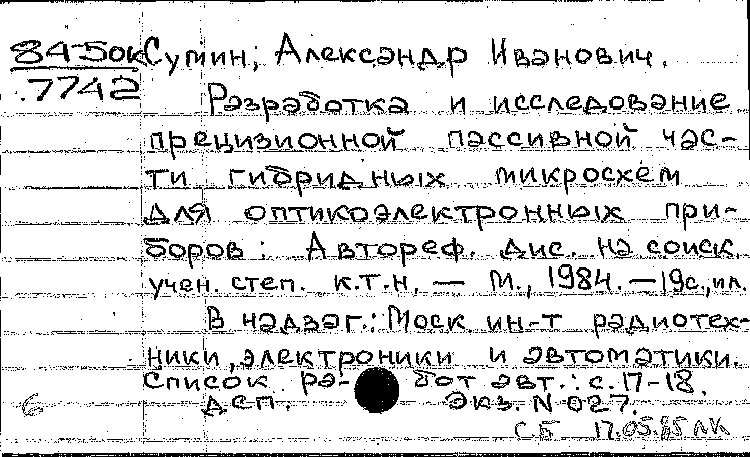 84-5ок Сутин, Александр Иванович.
7742
Разработка и исследование
прецизионной пассивной час-
ти гибридных микросхем
для оптикоэлектронных при-
боров: Автореф. дис. на соиск.
учен. степ. к.т.н. — М., 1984. — 19с., ил.
В надзаг.: Моск ин-т радиотех-
ники, электроники и автоматики.
Список ра- бот авт.: с. 17-18.
6 ДСП. Экз. N-027.
СБ 17.05.85 ЛК